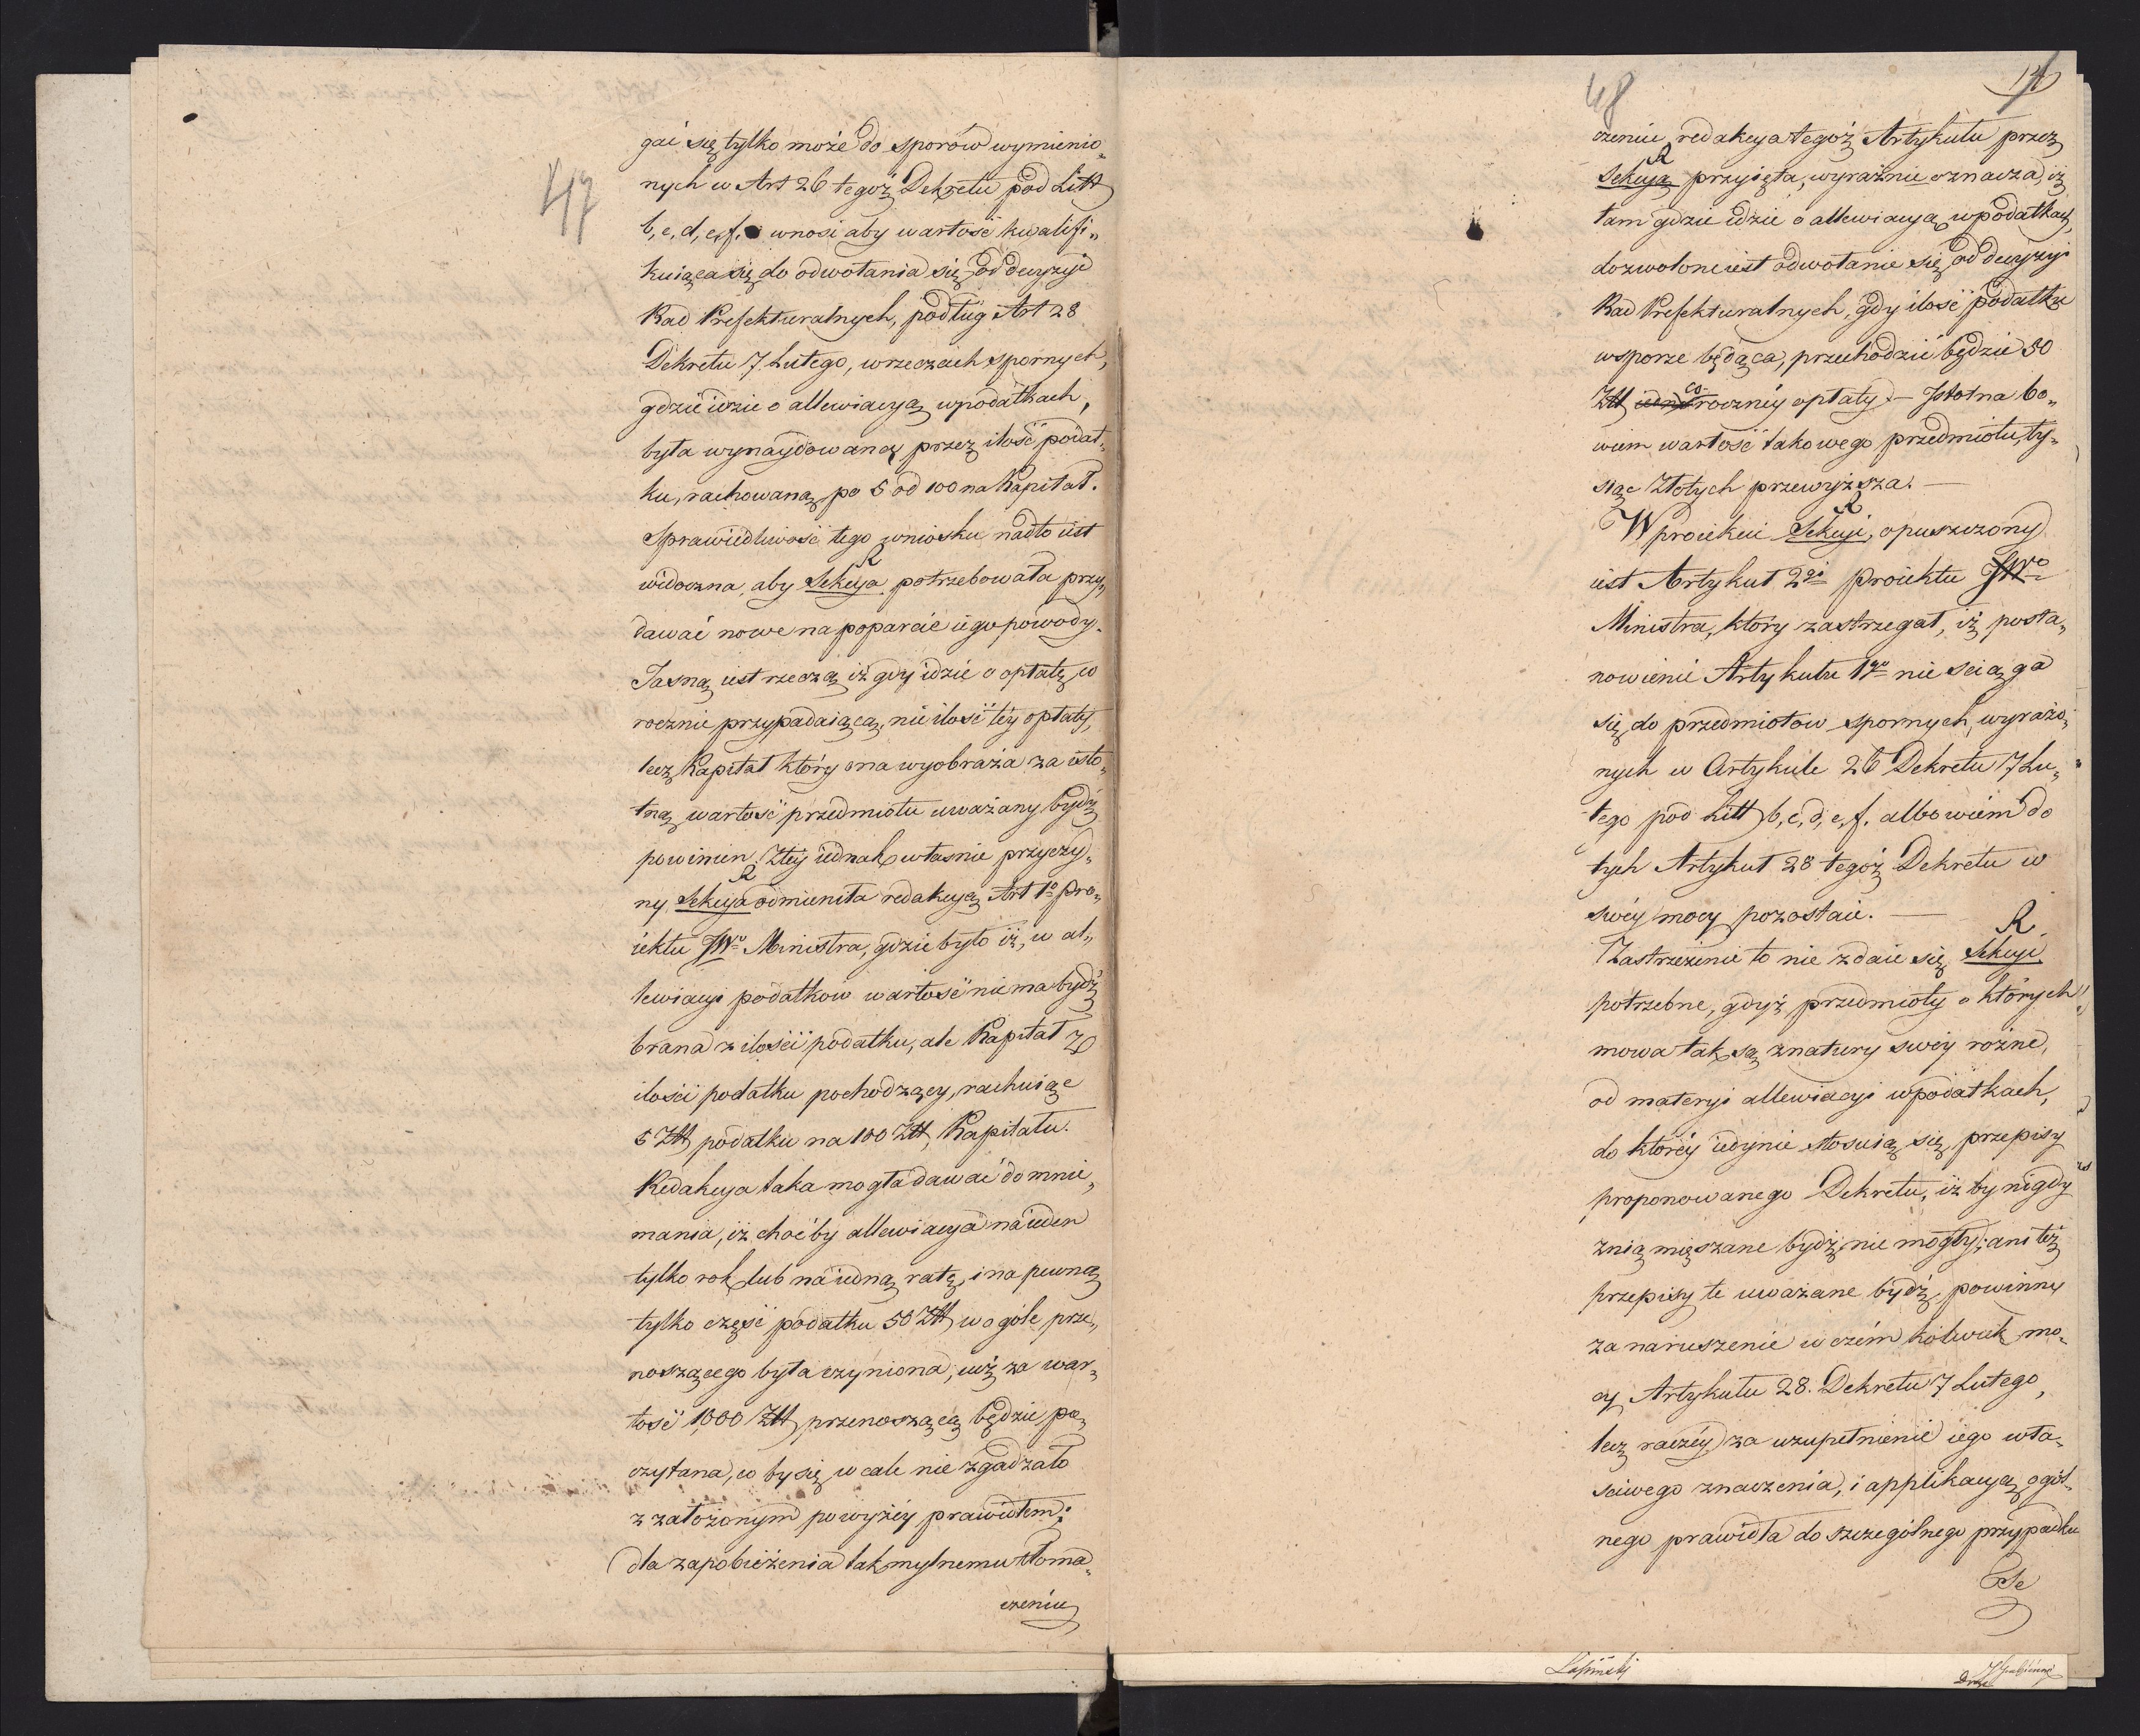 47
gać się tylko może do sporów wymienio„
nych w Art 26 tegoż Dekretu pod Litt
b, c, d, e, f. wnosi aby wartość kwalifi„
kuiąca się do odwołania się od decyzyi
Rad Prefekturalnych, podług Art 28
Dekretu 7. Lutego, w rzeczach spornych,
gdzie idzie o allewiacyą w podatkach,
była wynaydowaną przez ilość podat„
ku, rachowaną po 5 od 100 na Kapitał.
Sprawiedliwość tego wniosku nadto iest
R
widoczna, aby Sekcya potrzebowała przy„
dawać nowe na poparcie iego powody.
Jasną iest rzeczą iż gdy idzie o opłatę co
rocznie przypadaiącą, nie ilość téy opłaty,
lecz Kapitał który ona wyobraża za isto„
tną wartość przedmiotu uważany bydź
powinien. Z téy iednak własnie przyczy„
R
ny Sekcya odmieniła redakcyą Art 1º pro„
iektu JWº Ministra, gdzie było iż, w al„
lewiacyi podatkow wartość nie ma bydź
brana z ilości podatku, ale Kapitał z
ilości podatku pochodzący, rachuiąc
5 Złł podatku na 100 Złł, Kapitału.
Redakcya taka mogła dawać do mnie„
mania, iż choćby allewiacya na ieden
tylko rok lub na iedną ratę, i na pewną
tylko część podatku 50 Złł w ogóle prze„
noszącego była czyniona, iuż za war„
tość 1,000 Złł przenoszącą będzie po„
czytana, co by się wcale nie zgadzało
z założonym powyżéy prawidłem;
dla zapobieżenia tak mylnemu tłoma„
czeniu
48
czeniu redakcya tegoż Artykułu przez
R
Sekcyą przyięta, wyraźnie oznacza, iż
tam gdzie idzie o allewiacyą w podatkach,
dozwolone iest odwołanie się od decyzyi
Rad Prefekturalnych, gdy ilość podatku
w sporze będąca, przechodzić będzie 50
co
Złł rocznéy opłaty. – Istotna bo„
wiem wartość takowego przedmiotu, ty„
siąc Złotych przewyższa. —
R
W proiekcie Sekcyi, opuszczony
iest Artykuł 2gi proiektu JWº
Ministra, który zastrzegał, iż posta„
nowienie Artykułu 1go nie sciąga
się do przedmiotow spornych, wyrażo„
nych w Artykule 26 Dekretu 7 Lu„
tego pod Litt b, c, d, e, f. albowiem do
tych Artykuł 28 tegoż Dekretu w
swéy mocy pozostaie. —
R
Zastrzeżenie to nie zdaie się Sekcyi
potrzebne, gdyż przedmioty o których
mowa tak są z natury swéy rożne,
od materyi allewiacyi w podatkach,
do któréy iedynie stosuią się przepisy
proponowanego Dekretu, iż by nigdy
z nią mięszane bydź nie mogły; ani też
przepisy te uważane bydź powinny
za naruszenie w czém kolwiek mo„
cy Artykułu 28. Dekretu 7 Lutego,
lecz raczéy za uzupełnienie iego wła„
sciwego znaczenia, i applikacyą ogól„
nego prawidła do szczególnego przypadku
Se